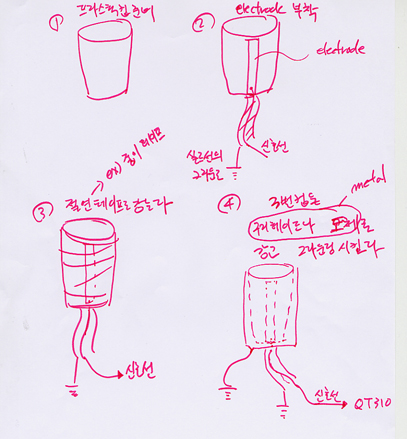 ①
플라스틱컵 준비
②
electrode 부착
electrode
실드선의
그라운드
신호선
ex) 종이 테이프
③
절연테이프로 감는다
신호선
④
3번 컵을
metal
구리테이프나
감고
그라운딩 시킨다
신호선
QT310